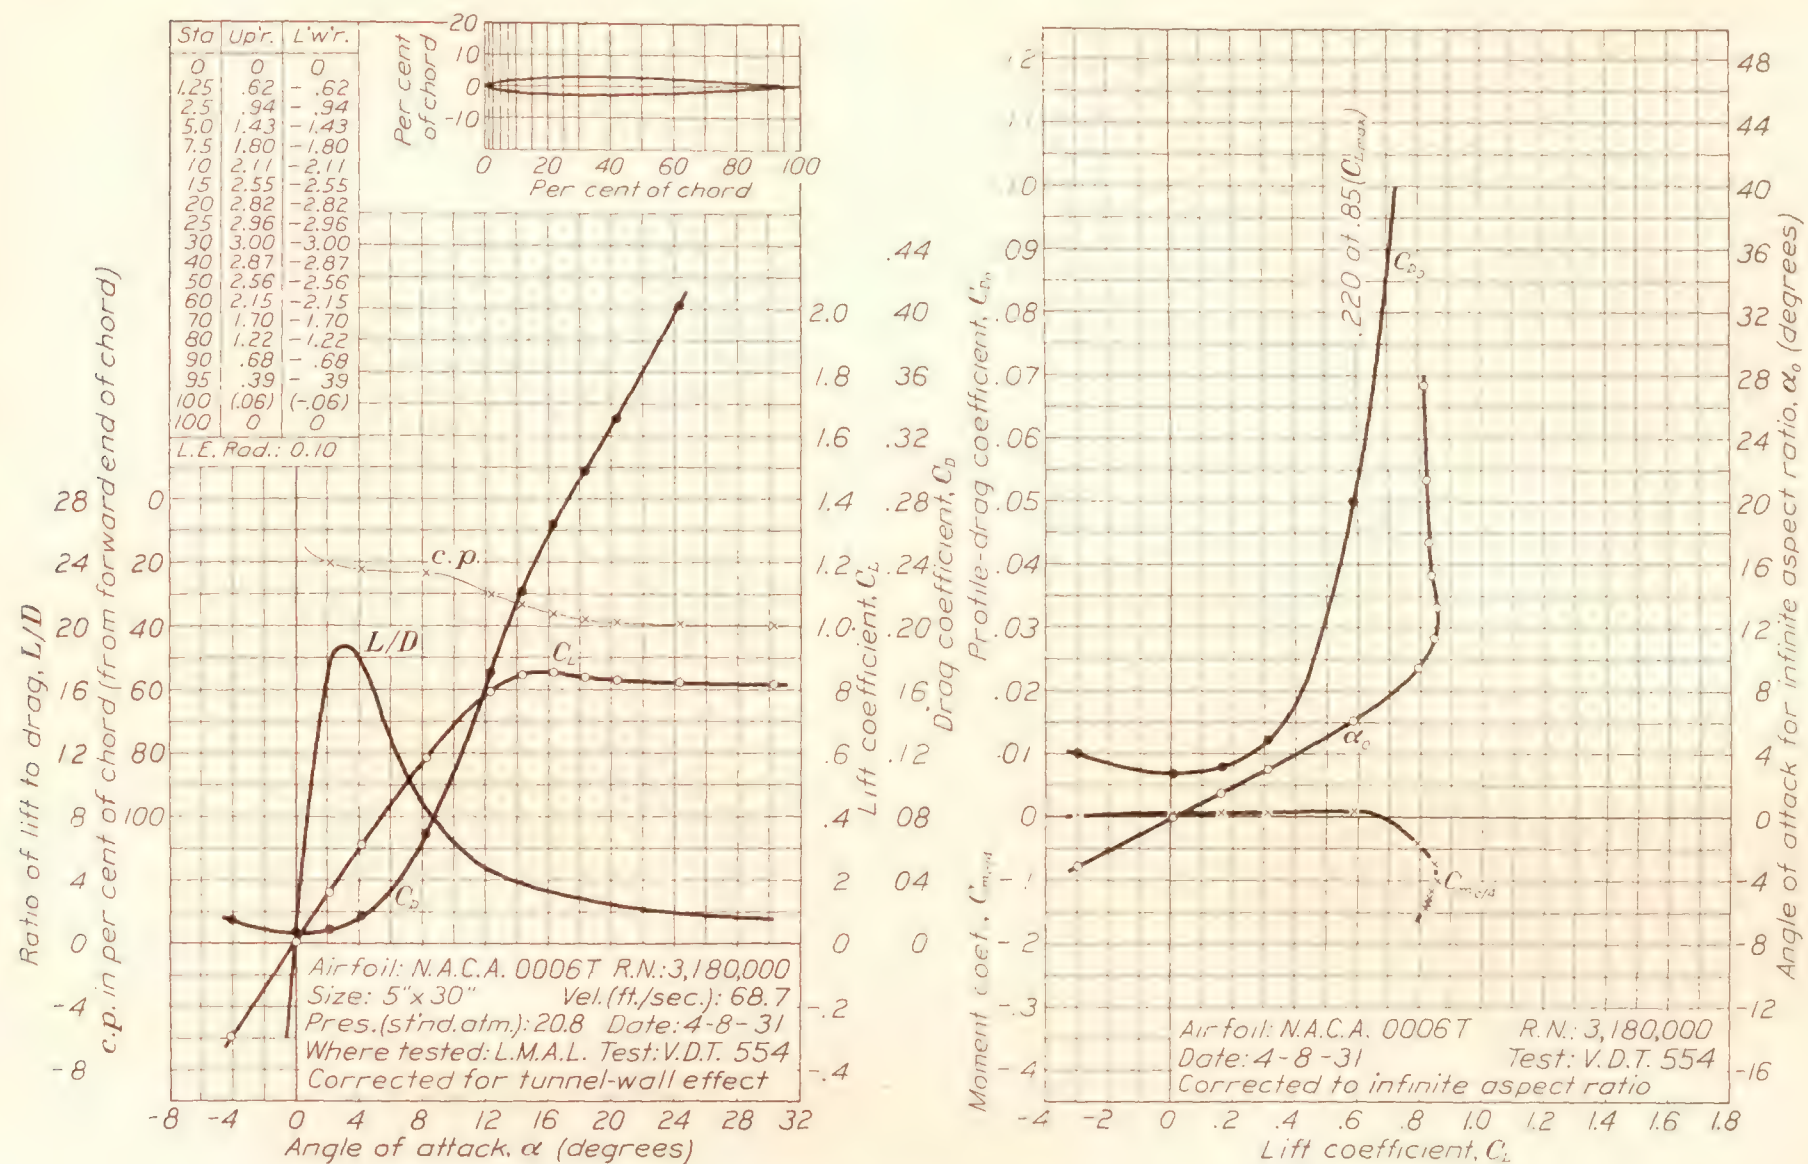 Sta Up'r. L'w'r.
0 0 0
1.25 .62 -.62
2.5 .94 -.94
5.0 1.43 -1.43
7.5 1.80 -1.80
10 2.11 -2.11
15 2.55 -2.55
20 2.82 -2.82
25 2.96 -2.96
30 3.00 -3.00
40 2.87 -2.87
50 2.56 -2.56
60 2.15 -2.15
70 1.70 -1.70
80 1.22 -1.22
90 .68 -.68
95 .39 -39
100 (.06) (-.06)
100 0 0
L.E. Rad.: 0.10
Per cent
of chord
20
10
0
-10
0 20 40 60 80 100
Per cent of chord
Ratio of lift to drag, L/D
28
24
20
16
12
8
4
0
-4
-8
c.p. in per cent of chord (from forward end of chord)
0
20
40
60
80
100
c.p.
L/D
C_L
C_D
Lift coefficient, C_L
2.0
1.8
1.6
1.4
1.2
1.0
.8
.6
.4
2
0
-.2
-.4
Drag coefficient, C_D
.44
40
36
.32
.28
.24
.20
.16
.12
08
04
0
Airfoil: N.A.C.A. 0006T R.N.: 3,180,000
Size: 5"x30" Vel.(ft./sec.): 68.7
Pres.(st'nd.atm.): 20.8 Date: 4-8-31
Where tested: L.M.A.L. Test: V.D.T. 554
Corrected for tunnel-wall effect
-8 -4 0 4 8 12 16 20 24 28 32
Angle of attack, α (degrees)
Profile-drag coefficient, C_D0
.12
.11
.10
.09
.08
.07
.06
.05
.04
.03
.02
.01
0
Moment coef., C_m c/4
-.1
-2
-.3
-4
.220 at .85 (C_L max)
C_D0
α_0
C_m c/4
48
44
40
36
32
28
24
20
16
12
8
4
0
-4
-8
-12
-16
Angle of attack for infinite aspect ratio, α_0 (degrees)
Airfoil: N.A.C.A. 0006T R.N.: 3,180,000
Date: 4-8-31 Test: V.D.T. 554
Corrected to infinite aspect ratio
-4 -2 0 .2 .4 .6 .8 1.0 1.2 1.4 1.6 1.8
Lift coefficient, C_L